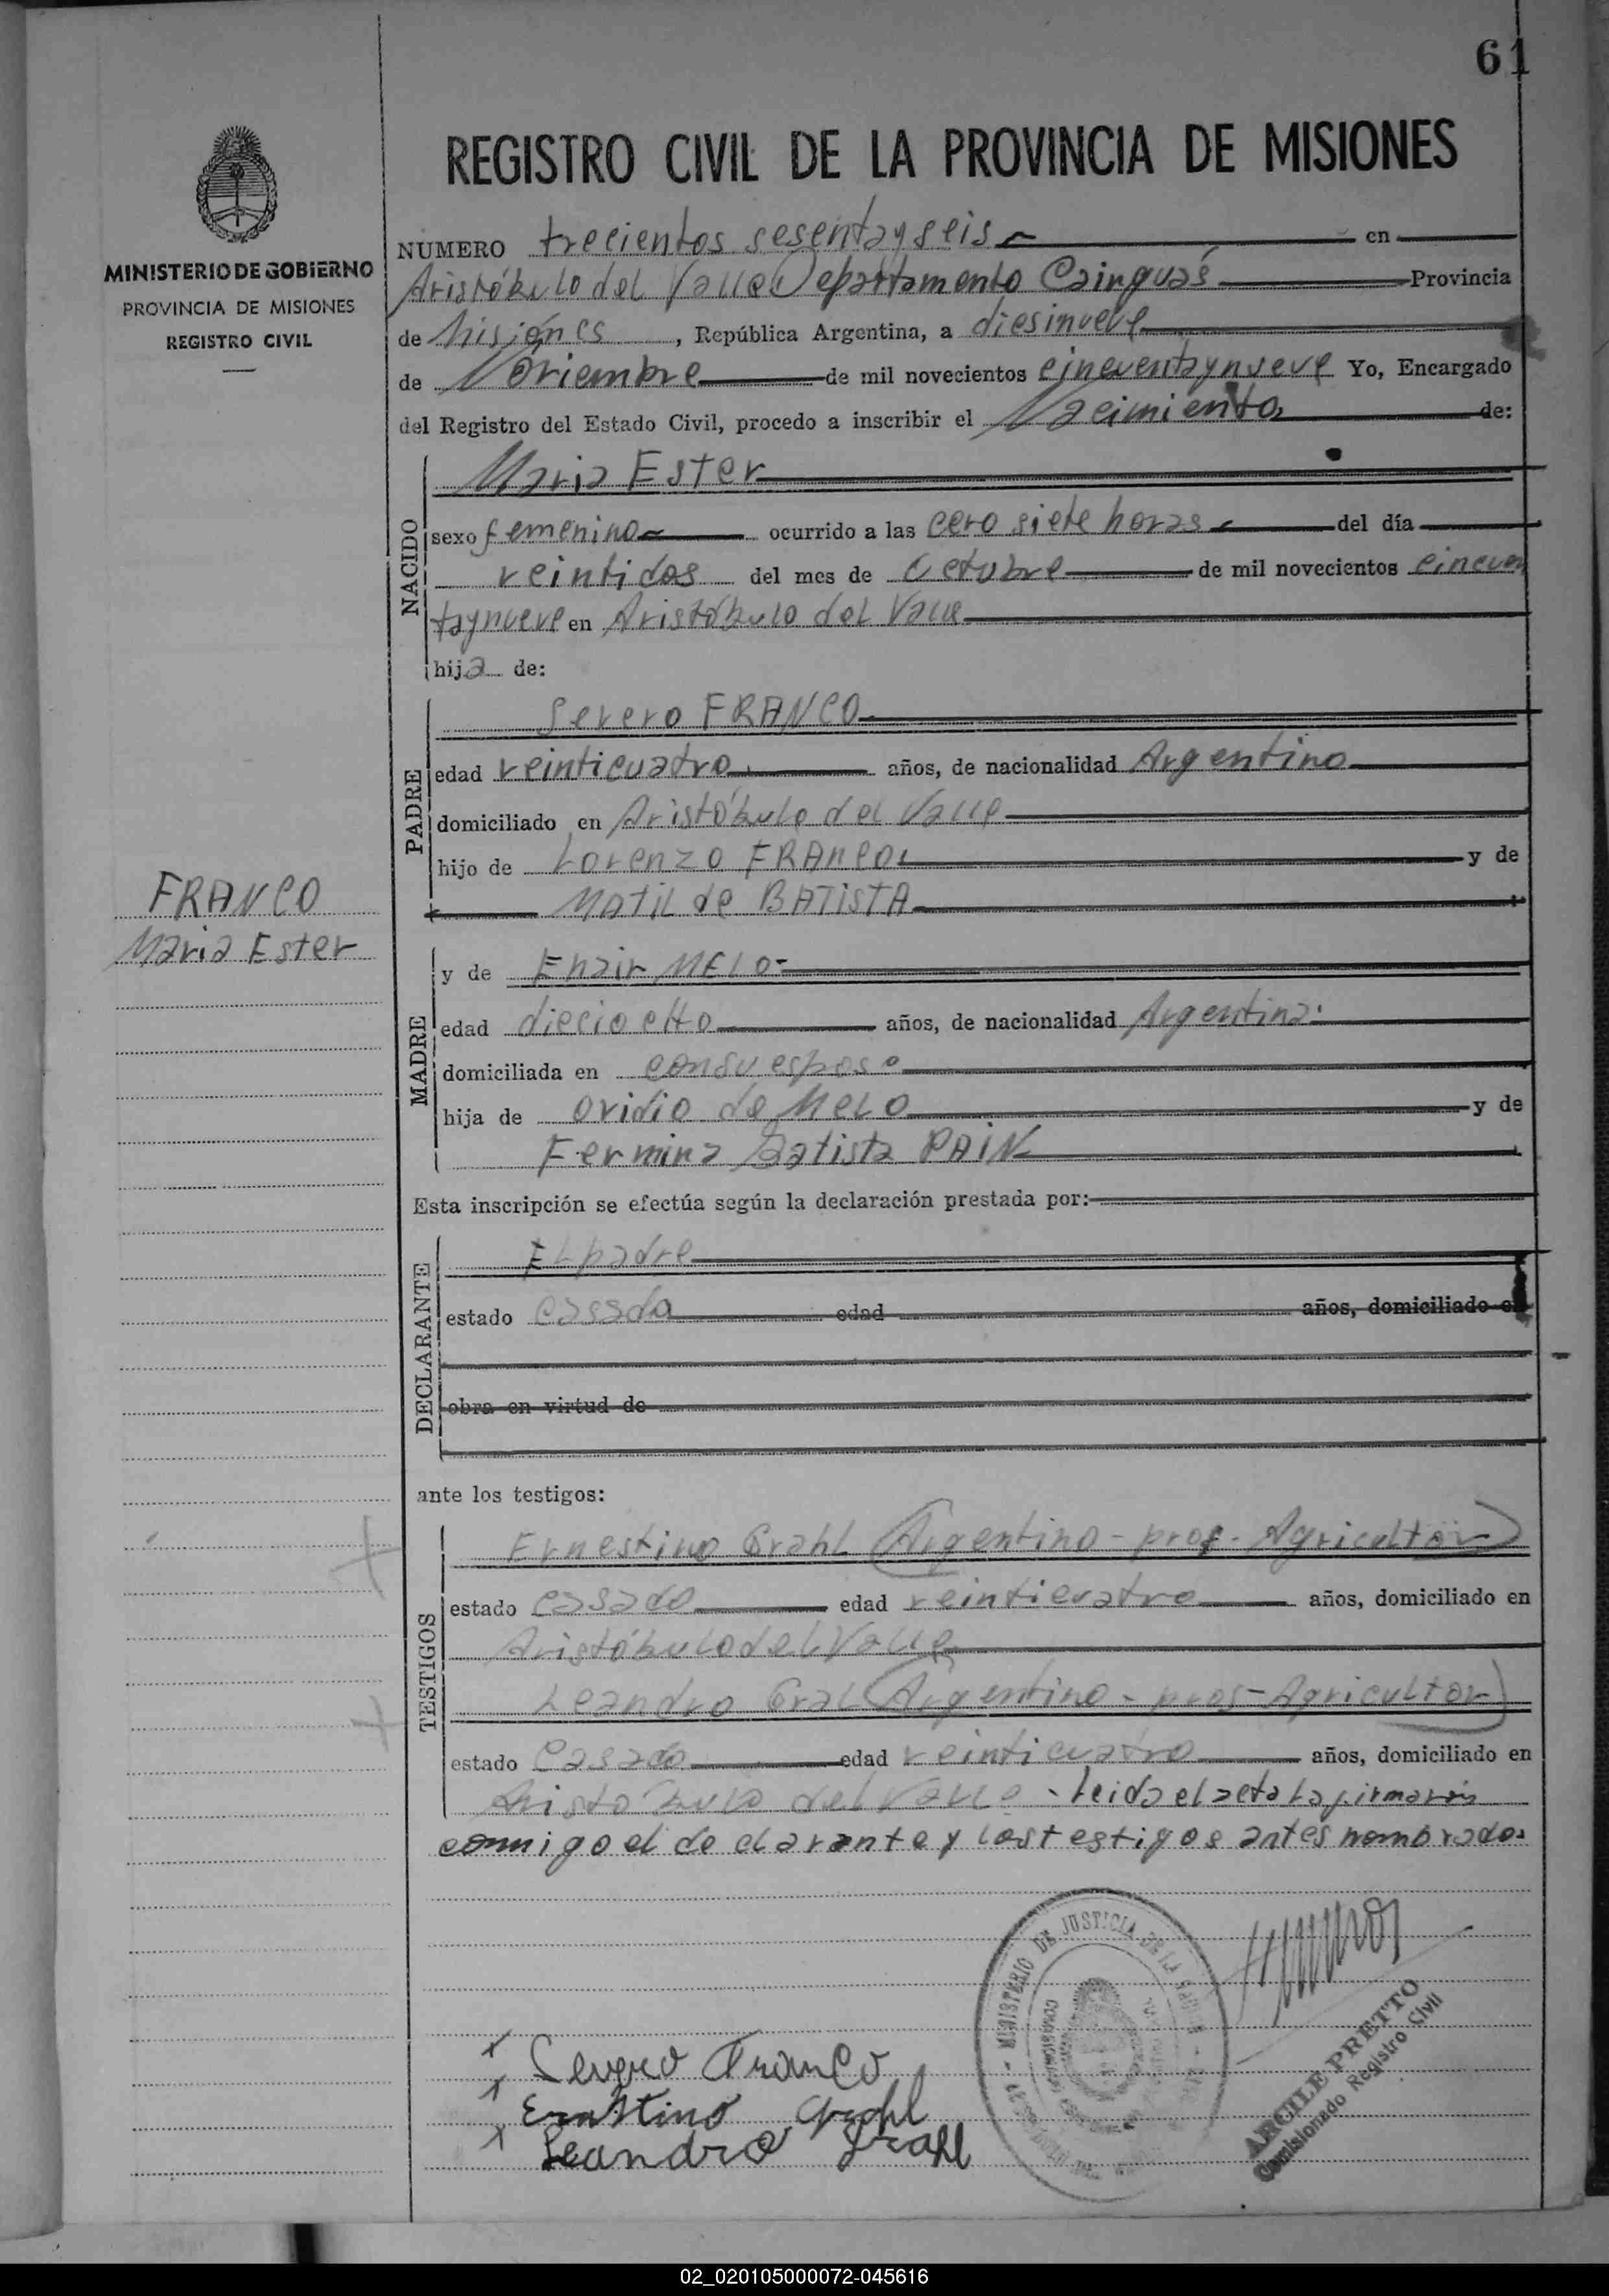 61
REGISTRO CIVIL DE LA PROVINCIA DE MISIONES
MINISTERIO DE GOBIERNO
PROVINCIA DE MISIONES
REGISTRO CIVIL
NUMERO trecientos sesentayseis en
Aristóbulo del Valle Departamento Cainguás Provincia
de Misiónes, República Argentina, a diesinueve
de Noviembre de mil novecientos cincuentaynueve Yo, Encargado
del Registro del Estado Civil, procedo a inscribir el Nacimiento de:
NACIDO
Maria Ester
sexo femenino ocurrido a las cero siete horas del día
veintidos del mes de Octubre de mil novecientos cincuen
taynueve en Aristóbulo del Valle
hija de:
PADRE
Severo FRANCO
edad veinticuatro años, de nacionalidad Argentino
domiciliado en Aristóbulo del Valle
hijo de Lorenzo FRANCO y de
Matilde BATISTA
FRANCO
Maria Ester
MADRE
y de Enair MELO
edad dieciocho años, de nacionalidad Argentina
domiciliada en con su esposo
hija de Ovidio de MELO y de
Fermina Batista PAIN
Esta inscripción se efectúa según la declaración prestada por:
DECLARANTE
El padre
estado casado edad años, domiciliado en
obra en virtud de
ante los testigos:
TESTIGOS
Ernestino Grahl (Argentino - prof - Agricultor)
estado casado edad veinticuatro años, domiciliado en
Aristóbulo del Valle
Leandro Gral (Argentino - prof - Agricultor)
estado casado edad veinticuatro años, domiciliado en
Aristóbulo del Valle - Leida el acta la firmarón
conmigo el declarante y los testigos antes nombrados
MINISTERIO DE JUSTICIA DE LA
Severo Franco
Ernstino Grahl
Leandro Grahl
ARGILE PRETTO
Comisionado Registro Civil
02_020105000072-045616